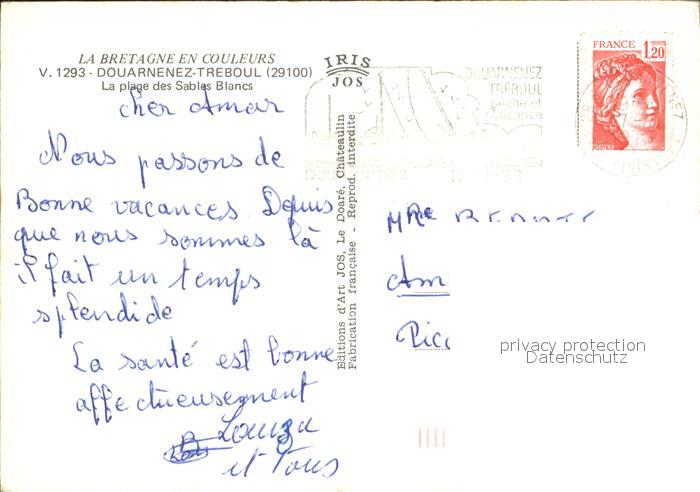 LA BRETAGNE EN COULEURS
V. 1293 - DOUARNENEZ-TREBOUL (29100)
La plage des Sables Blancs
IRIS
JOS
cher Amar
Nous passons de
Bonne vacances. Depuis
que nous sommes là
il fait un temps
splendide
La santé est bonne
affectueusement
et Tous
Editions d'Art JOS, Le Doaré, Châteaulin
Fabrication française - Reprod. interdite
DOUARNENEZ
TRÉBOUL
pêche et
plaisance
DOUARNENEZ
FRANCE 1,20
Am
privacy protection
Datenschutz